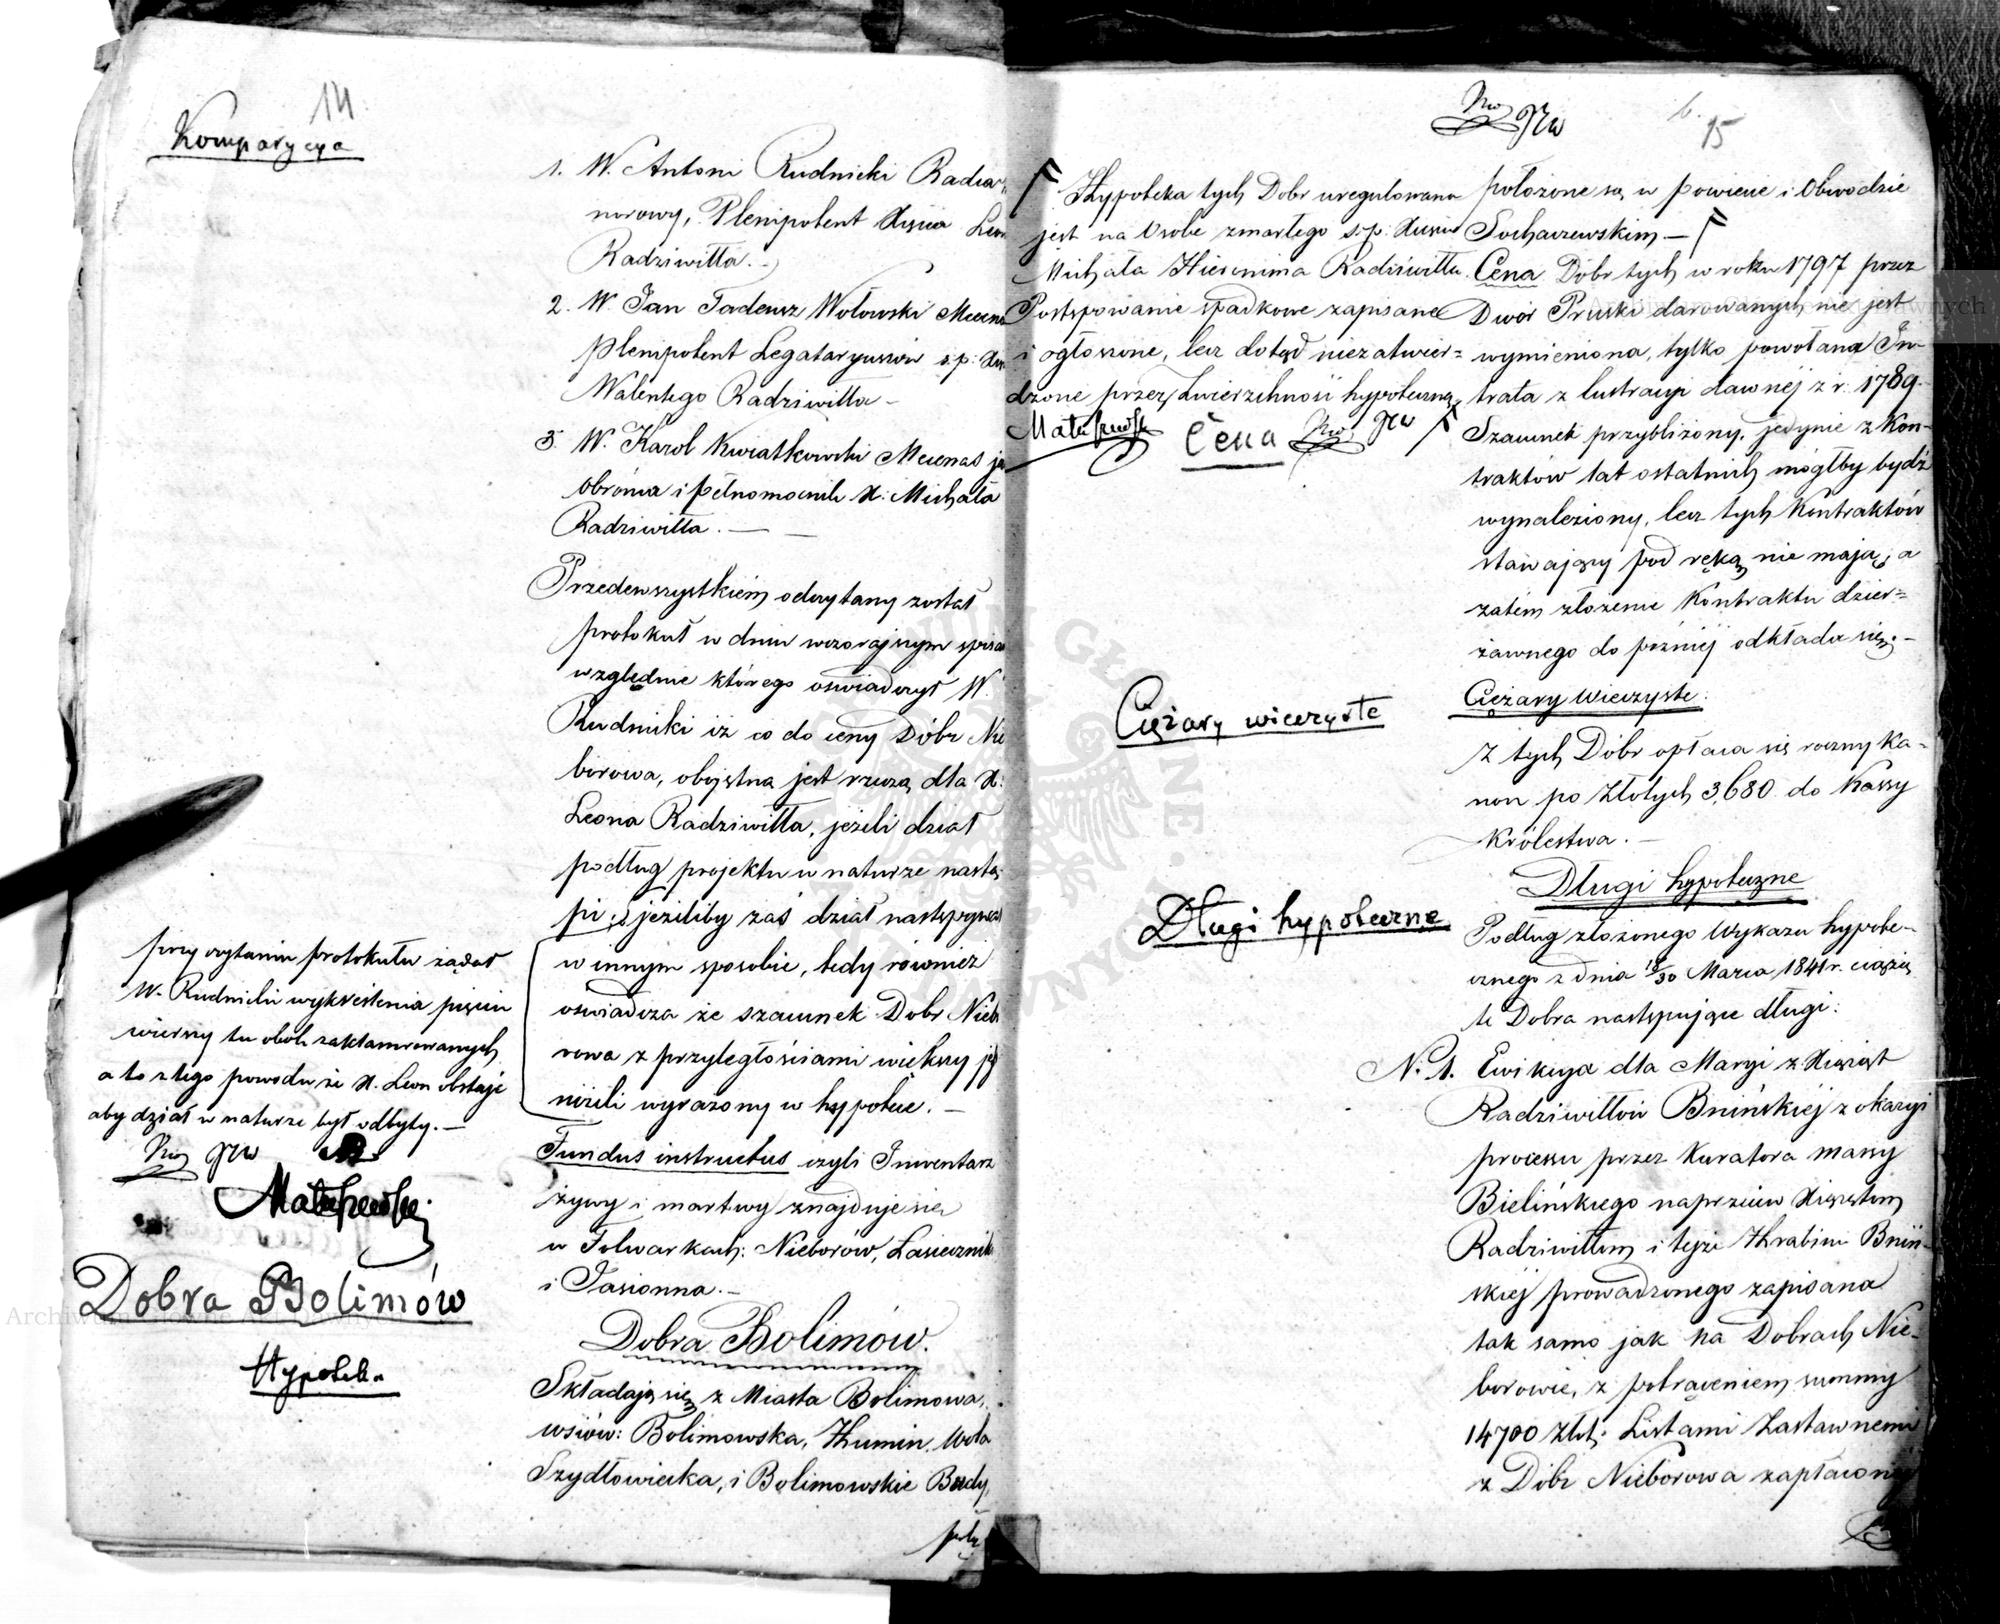 14
Komparycya
1. W. Antoni Rudnicki Radca
norowy, Plenipotent Xięcia Leon
Radziwiłła. –
2. W. Jan Tadeusz Wołowski Mecena
Plenipotent Legataryuszów s.p: Xię
Walentego Radziwiłła –
3. W. Karol Kwiatkowski Mecenas ja
obrońca i pełnomocnik X: Michała
Radziwiłła. —
Przedewszystkiém odczytany został
protokuł w dniu wczorajszym spisa
względnie którego oświadczył W.
Rudnicki iż co do ceny Dóbr Nie
borowa, obojętną jest rzeczą dla X:
Leona Radziwiłła, jeżeli dział
podług projektu w naturze nastą
pi; jeżeliby zaś dział następował
w innym sposobie, tedy również
oświadcza że szacunek Dóbr Niebo
rowa z przyległościami większy jest
niżeli wyrażony w hypotece. —
przy czytaniu protokułu żądał
W. Rudnicki wykreślenia pięciu
wierszy tu obok zaklamrowanych
a to z tego powodu że X. Leon obstaje
aby dział w naturze był odbyty. —
Matuszewski
Fundus instructus czyli Inwentarz
żywy i martwy znajduje się
w Folwarkach: Nieborów, Łasiecznik
i Jasionna. –
Dobra Bolimów
Hypoteka
Dobra Bolimów.
Składają się z Miasta Bolimowa,
wsiów: Bolimowska, Humin, Wola
Szydłowiecka, i Bolimowskie Budy,
poło
6.
15
Hypoteka tych Dóbr uregulowana
jest na Osobę zmarłego s.p: Xięcia
Michała Hieronima Radziwiłła.
Postępowanie spadkowe zapisane
i ogłoszone, lecz dotąd niezatwier=
dzone przez Zwierzchność hypoteczną,
Matuszewski
Cena
położone są w Powiecie i Obwodzie
Sochaczewskim —
Cena Dóbr tych w roku 1797 przez
Dwór Pruski darowanych, nie jest
wymieniona, tylko powołana In-
trata z lustracyi dawnéj z r: 1789.
Szacunek przybliżony, jedynie z Kon-
traktów lat ostatnich mógłby bydź
wynaleziony, lecz tych Kontraktów
stawający pod ręką nie mają, a
zatém złożenie Kontraktu dzier=
żawnego do później odkłada się. –
Ciężary wieczyste
Ciężary wieczyste:
Z tych Dóbr opłaca się roczny Ka-
non po Złotych 3,680 do Kassy
Królestwa. –
Długi hypoteczne
Długi hypoteczne
Podług złożonego Wykazu hypote-
cznego z dnia 18/30 Marca 1841 r. ciążą
te Dobra następujące długi:
N. 1. Ewikcya dla Maryi z Xiążąt
Radziwiłłów Bnińskiéj z okazyi
processu przez Kuratora massy
Bielińskiego naprzeciw Xiążętom
Radziwiłłom i tejże Hrabini Bniń-
skiéj prowadzonego zapisana
tak samo jak na Dobrach Nie-
borowie, z potrąceniem summy
14700 Złot: Listami Zastawnemi
z Dóbr Nieborowa zapłaconej